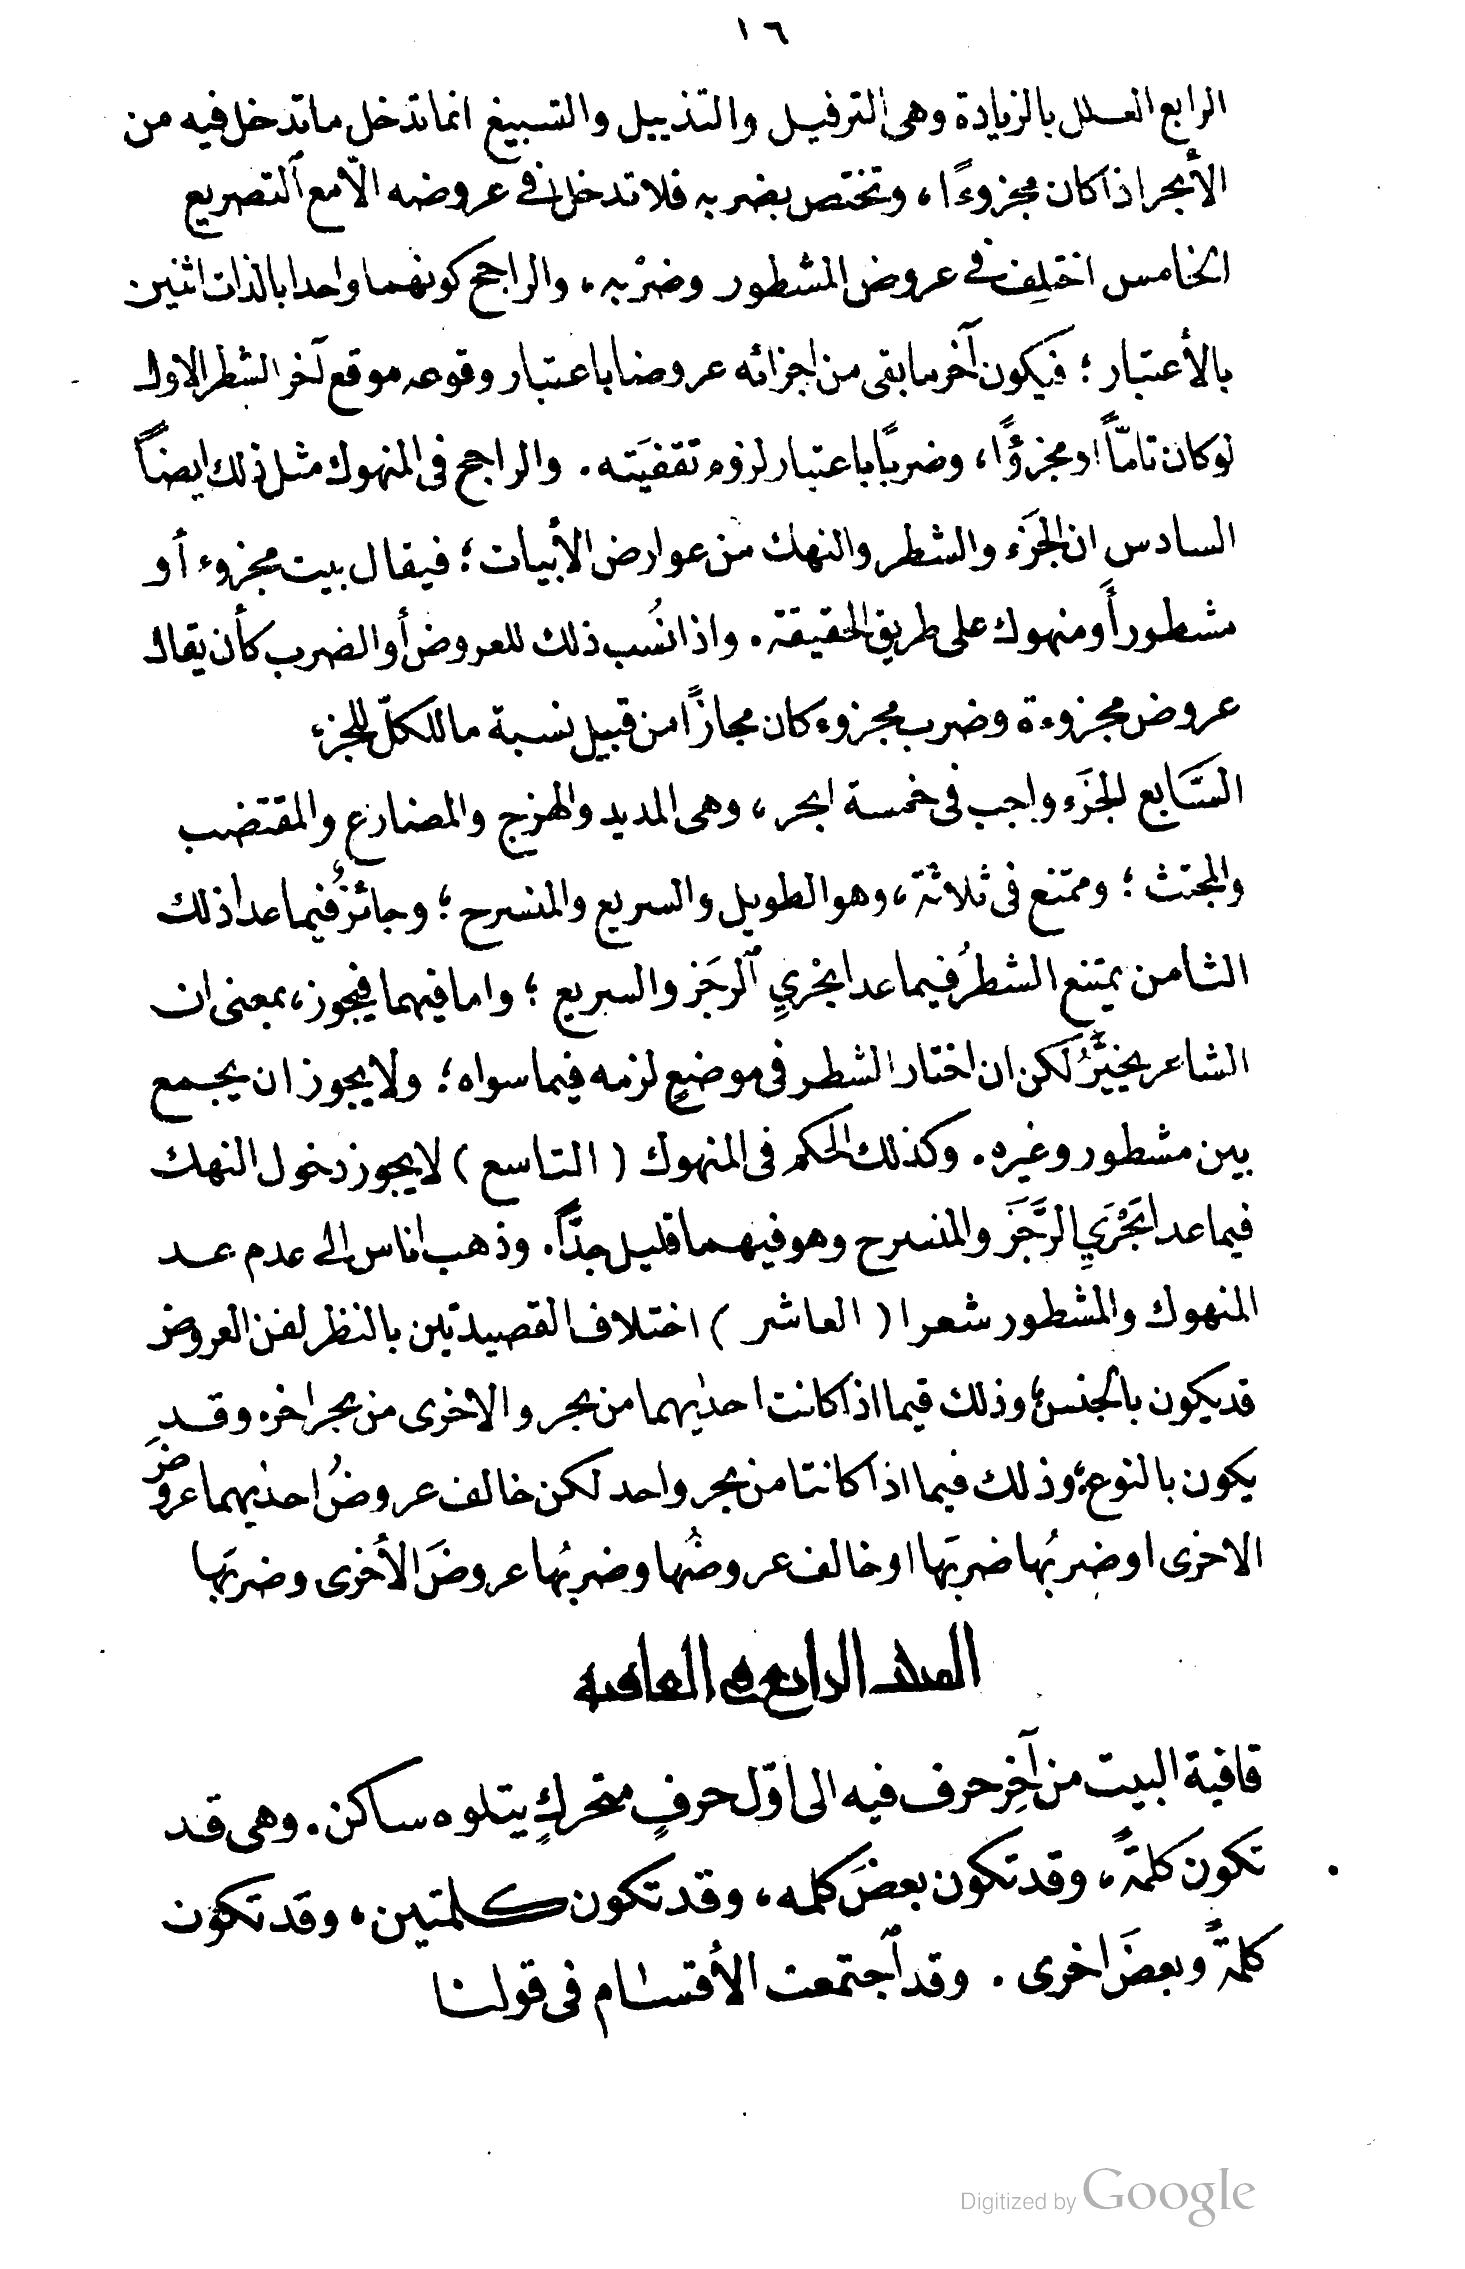 ١٦
الرابع العلل بالزيادة وهى الترفيل والتذييل والتسبيغ انما تدخل ما تدخل فيه من
الأبحر اذا كان مجزوءًا، وتختص بضربه فلا تدخل فى عروضه الّا مع ٱلتصريع
الخامس اختلِف فى عروض المشطور وضرْبه، والراجح كونهما واحدا بالذات اثنين
بالأعتبار؛ فيكون آخر ما بقى من اجزائه عروضا باعتبار وقوعه موقع آخر الشطر الاول
لو كان تامّاً او مجزؤًا، وضربًا باعتبار لزوم تقفيَته. والراجح فى المنهوك مثل ذلك ايضاً
السادس ان الجَزء والشطر والنهك من عوارض الأبيات؛ فيقال بيت مجزوء أو
مشطور أو منهوك على طريق الحقيقة. واذا نُسب ذلك للعروض أو الضرب كأن يقال
عروض مجزوءة وضرب مجزوء كان مجازًا من قبيل نسبة ما للكلّ للجزء
السَّابع الجَزء واجب فى خمسة ابحر، وهى المديد والهزج والمضارع والمقتضب
والمجتث؛ وممتنع فى ثلاثة، وهو الطويل والسريع والمنسرح؛ وجائزٌ فيما عدا ذلك
الثامن يمتنع الشطرُ فيما عدا بحْريِ ٱلرجَز والسريع؛ واما فيهما فيجوز، بمعنى ان
الشاعر يخيَّرُ لكن ان اختار الشطر فى موضعٍ لزمه فيما سواه؛ ولا يجوز ان يجمع
بين مشطور وغيره. وكذلك الحكم فى المنهوك ( التاسع ) لا يجوز دخول النهك
فيما عدا بَحْرَيِ الرَّجَز والمنسرح وهو فيهما قليل جدًّا. وذهب اناس الى عدم عد
المنهوك والمشطور شعرا ( العاشر ) اختلاف القصيدتين بالنظر لفن العروض
قد يكون بالجنس؛ وذلك فيما اذا كانت احدٰيهما من بحر والاخرى من بحر اخر، وقد
يكون بالنوع؛ وذلك فيما اذا كانتا من بحر واحد لكن خالف عروضُ احدٰيهما عروضَ
الاخرى او ضربُها ضربَها او خالف عروضُها وضربُها عروضَ الأخرى وضربَها
المبحث الرابع فى القافية
قافية البيت من آخِر حرف فيه الى اوّل حرفٍ متحركٍ يتلوه ساكن. وهى قد
تكون كلمةً، وقد تكون بعضَ كلمه، وقد تكون كلمتين، وقد تكون
كلمةً وبعضَ اخرى. وقد ٱجتمعت الأقسام فى قولنا
Digitized by Google